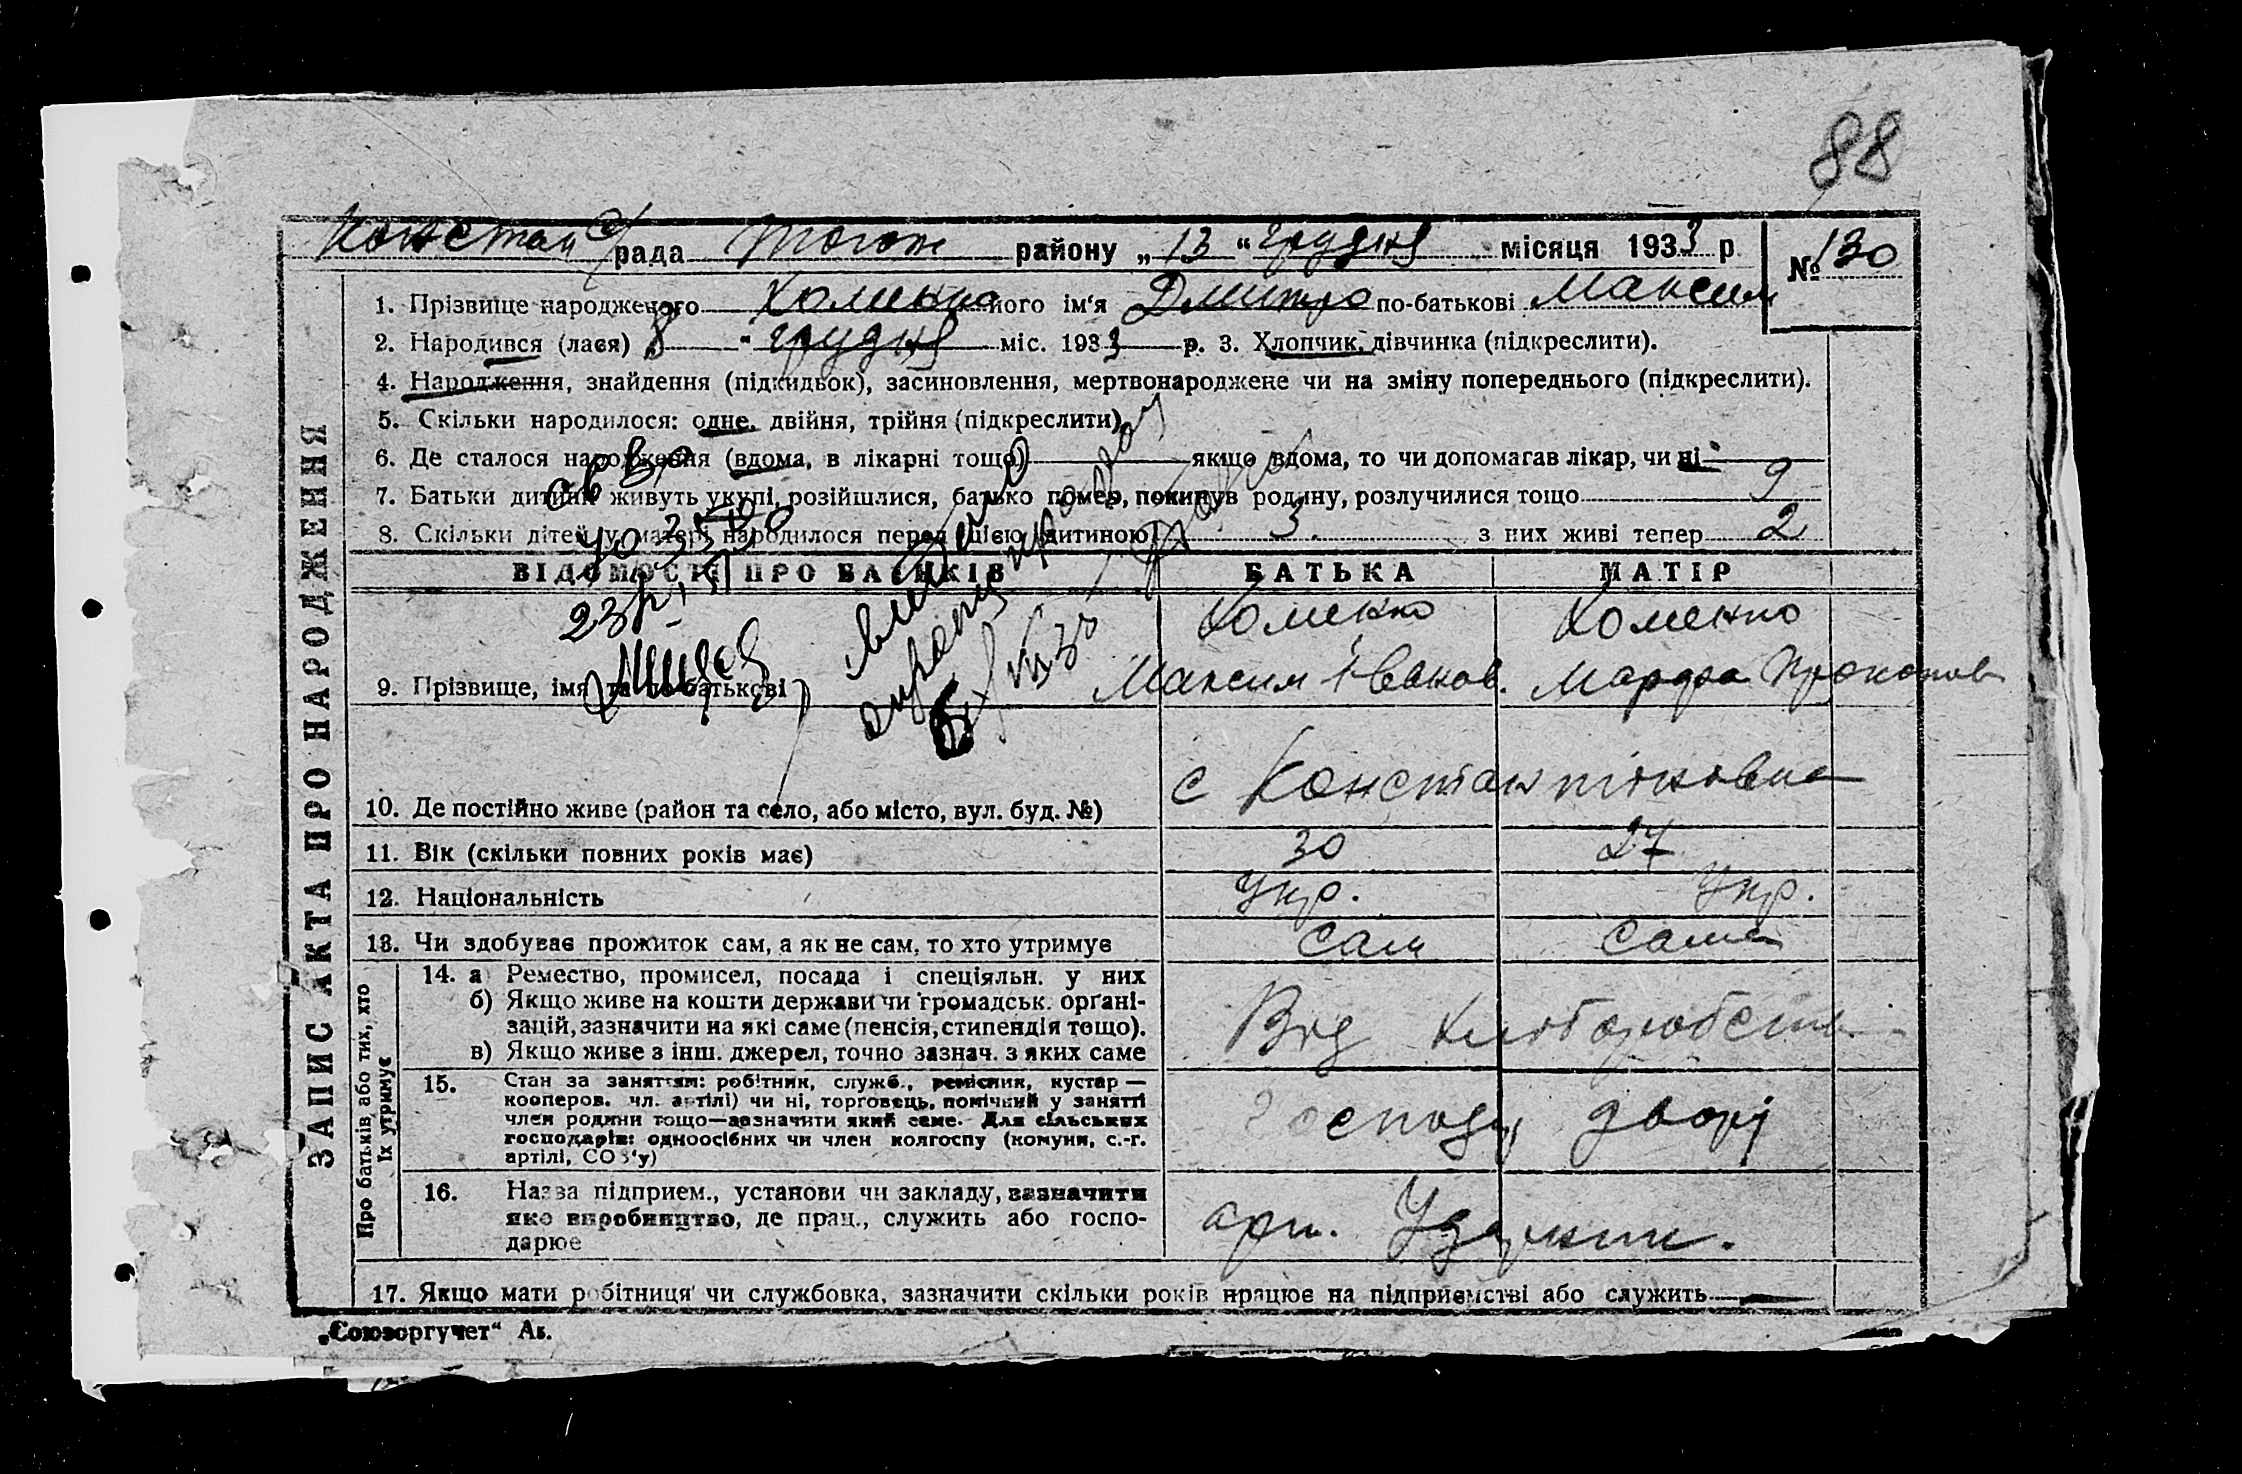 88
Констан с/рада районy „13“ грудня місяця 1933 р. № 130
1. Прізвище народженого Хоменко його ім‘я Дмитро по-батькові Максим
2. Народився (лася) 8 " грудня міс. 1933 р. 3. Хлопчик, дівчинка (підкреслити).
4. Народження, знайдення (підкидьок), засиновлення, мертвонароджене чи на зміну попереднього (підкреслити).
5. Скільки народилося: одне, двійня, трійня (підкреслити)
6. Де сталося народження (вдома, в лікарні тощо) якщо вдома, то чи допомагав лікар, чи ні
7. Батьки дитини живуть укупі, розійшлися, батько помер, покинув родину, розлучилися тощо
8. Скільки дітей у матері народилося перед цією дитиною 3 з них живі тепер 2
ВІДОМОСТІ ПРО БАТЬКІВ БАТЬКА МАТІР
23р.
Хоменко Хоменко
9. Прізвище, імя та по-батькові Максим Іванов. Марфа Прокопов
10. Де постійно живе (район та село, або місто, вул. буд. №) с Константиновка
11. Вік (скільки повних років має) 30 27
12. Національність Укр. Укр.
13. Чи здобуває прожиток сам, а як не сам, то хто утримує сам сама
14. а Ремество, промисел, посада і спеціяльн. у них
б) Якщо живе на кошти держави чи громадськ. орґані-
зацій, зазначити на які саме (пенсія, стипендія тощо).
в) Якщо живе з інш. джерел, точно зазнач. з яких саме
Від хліборобств
15. Стан за заняттям: робітник, служб., ремісник, кустар —
кооперов. чл. артілі) чи ні, торговець, помічний у занятті
член родини тощо—зазначити який саме. Для сільських
господарів: одноосібних чи член колгоспу (комуни, с.-г.
артілі, СОЗ‘у)
дворі
16. Назва підприєм., установи чи закладу, зазначити
яке виробництво, де прац., служить або госпо-
дарює
арт.
17. Якщо мати робітниця чи службовка, зазначити скільки років працює на підприємстві або служить
ЗАПИС АКТА ПРО НАРОДЖЕННЯ
Про батьків, або тих, хто
їх утримує
„Союзоргучет“ Ав.